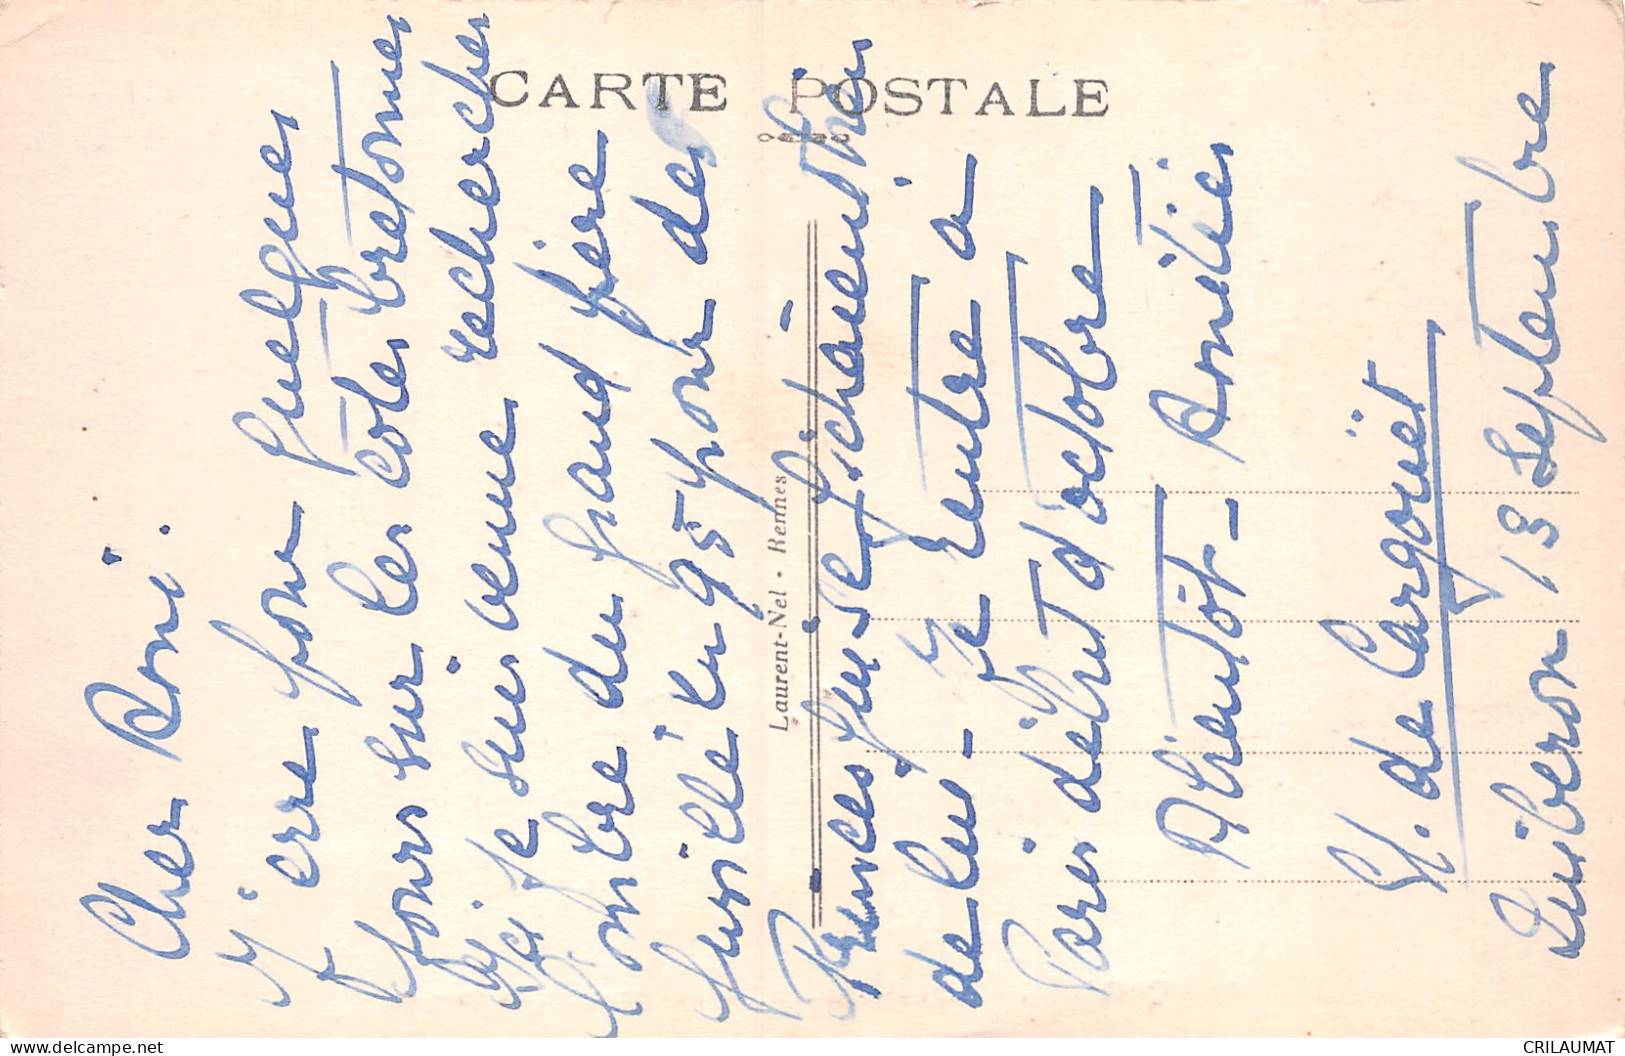 CARTE POSTALE
Laurent-Nel - Rennes
Cher Ami.
J'erre pour quelques
jours sur les côtes bretonnes
Ici je suis venue rechercher
l'ombre du grand père
fusillé en 95 pour des
Princes qui se fichaient bien
de lui - Je rentre à
Paris début d'octobre -
A bientôt - Amitiés
de Cargouët
Quiberon 13 Septembre
CRILAUMAT